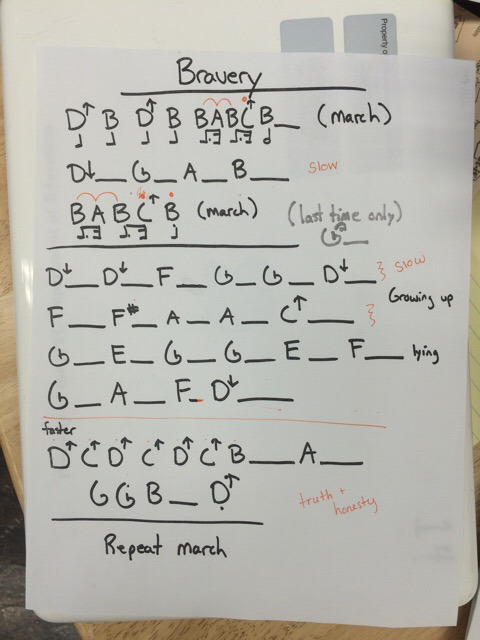 Property of
Bravery
D↑ B D↑ B BABC↑ B__ (march)
D↓__ G__ A__ B__ slow
BABC↑ B (march) (last time only)
G__
D↓__ D↓__ F__ G__ G__ D↓__ } slow
Growing up
F__ F#__ A__ A__ C↑__ }
G__ E__ G__ G__ E__ F__ lying
G__ A__ F_ D↓__
faster
D↑ C↑ D↑ C↑ D↑ C↑ B__ A__
G G B__ D↑ truth + honesty
Repeat march